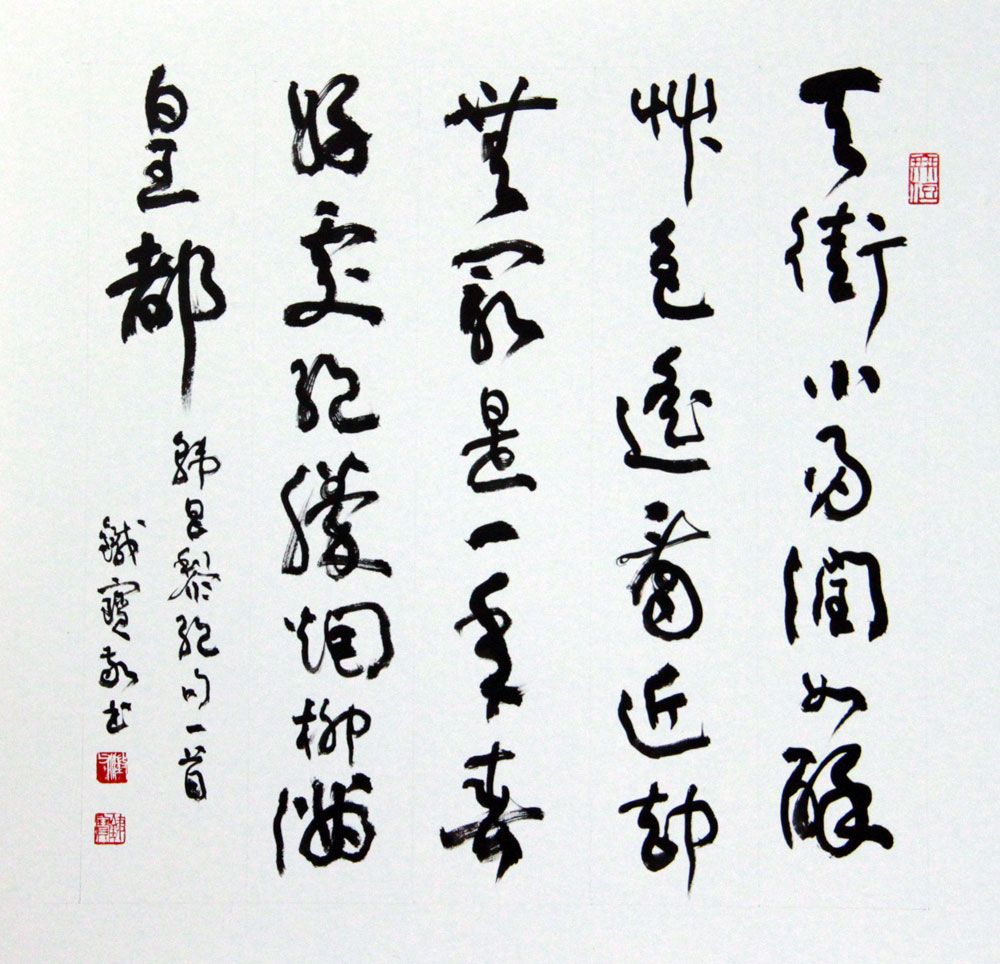 天街小雨潤如酥
艸色遙看近却
無最是一年春
好處絕勝烟柳滿
皇都
韓昌黎絕句一首
鐵寶敬書